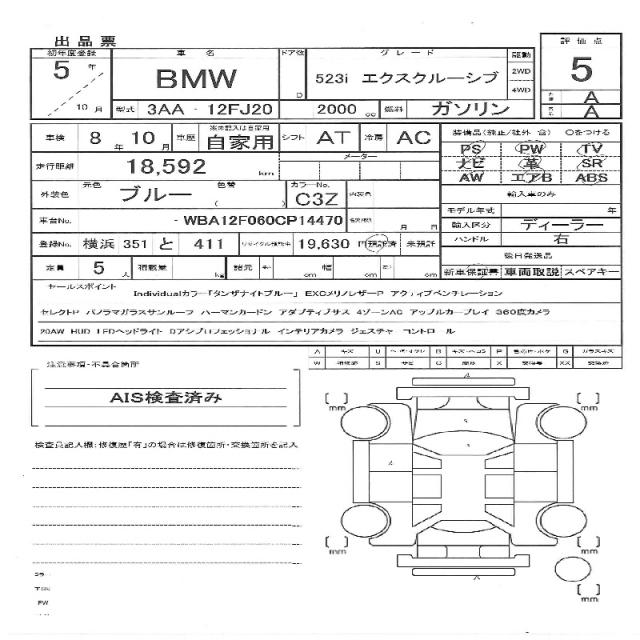 出品票
初年度登録 車名 ドア数 グレード 駆動 評価点
5年 10月 BMW D 523i エクスクルーシブ 2WD 4WD 5
型式 3AA - 12FJ20 2000 cc 燃料 ガソリン A A
車検 8年 10月 車歴 自家用 シフト AT 冷房 AC 装備品(純正/社外 含) ○をつける
走行距離 18,592 km メーター PS PW TV
ナビ 革 SR
AW エアB ABS
外装色 元色 ブルー 色替 ( ) カラーNo. C3Z 内装色 輸入車のみ
モデル年式 年
車台No. - WBA12F060CP14470 月 日 輸入区分 ディーラー
登録No. 横浜 351 と 411 リサイクル預託金 19,630 円 預託済 未預託 ハンドル 右
定員 5人 積載量 kg 諸元 長 cm 幅 cm 高 cm 後日発送品
新車保証書 車両取説 スペアキー
セールスポイント
Individualカラー「タンザナイトブルー」 EXCメリノレザーP アクティブベンチレーション
セレクトP パノラマガラスサンルーフ ハーマンカードン アダプティブサス 4ゾーンAC アップルカープレイ 360度カメラ
20AW HUD LEDヘッドライト Dアシプロフェッショナル インテリアカメラ ジェスチャ コントロール
A キズ U B P G
W S サビ C X XX
注意事項・不具合箇所
AIS検査済み
検査員記入欄:修復歴「有」の場合は修復箇所・交換箇所を記入
mm mm
A
A
mm mm
A
mm
PW